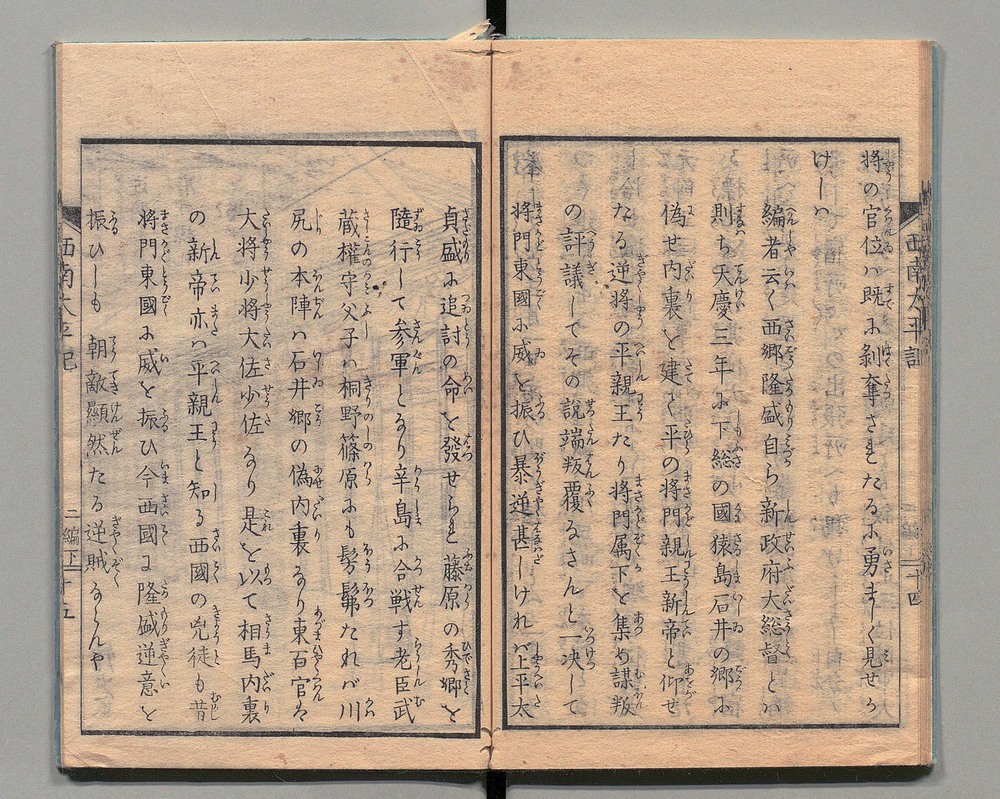 将の官位ハ既に剝奪されたるに勇ましく見せか
けしハ
編者云く西郷隆盛自ら新政府大総督といハ
則ち天慶三年に下総の國猿島石井の郷に
偽せ内裏を建て平の将門親王新帝と仰せ
なる逆将の平親王たり将門属下を集め謀叛
の評議してその説端叛覆なさんと一决して
将門東國に威を振ひ暴逆甚しけれバ上平太
貞盛に追討の命を發せられ藤原の秀郷を
隨行して参軍となり辛島に合戦す老臣武
蔵權守父子ハ桐野篠原にも髣髴たれバ川
尻の本陣ハ石井郷の偽内裏なり東百官な
大将少将大佐少佐なり是を以て相馬内裏
の新帝亦ハ平親王と知る西國の兇徒も昔
将門東國に威を振ひ今西國に隆盛逆意を
振ひしも 朝敵顯然たる逆賊ならんや
西南太平記
二編下
十四
西南太平記
二編下
十五